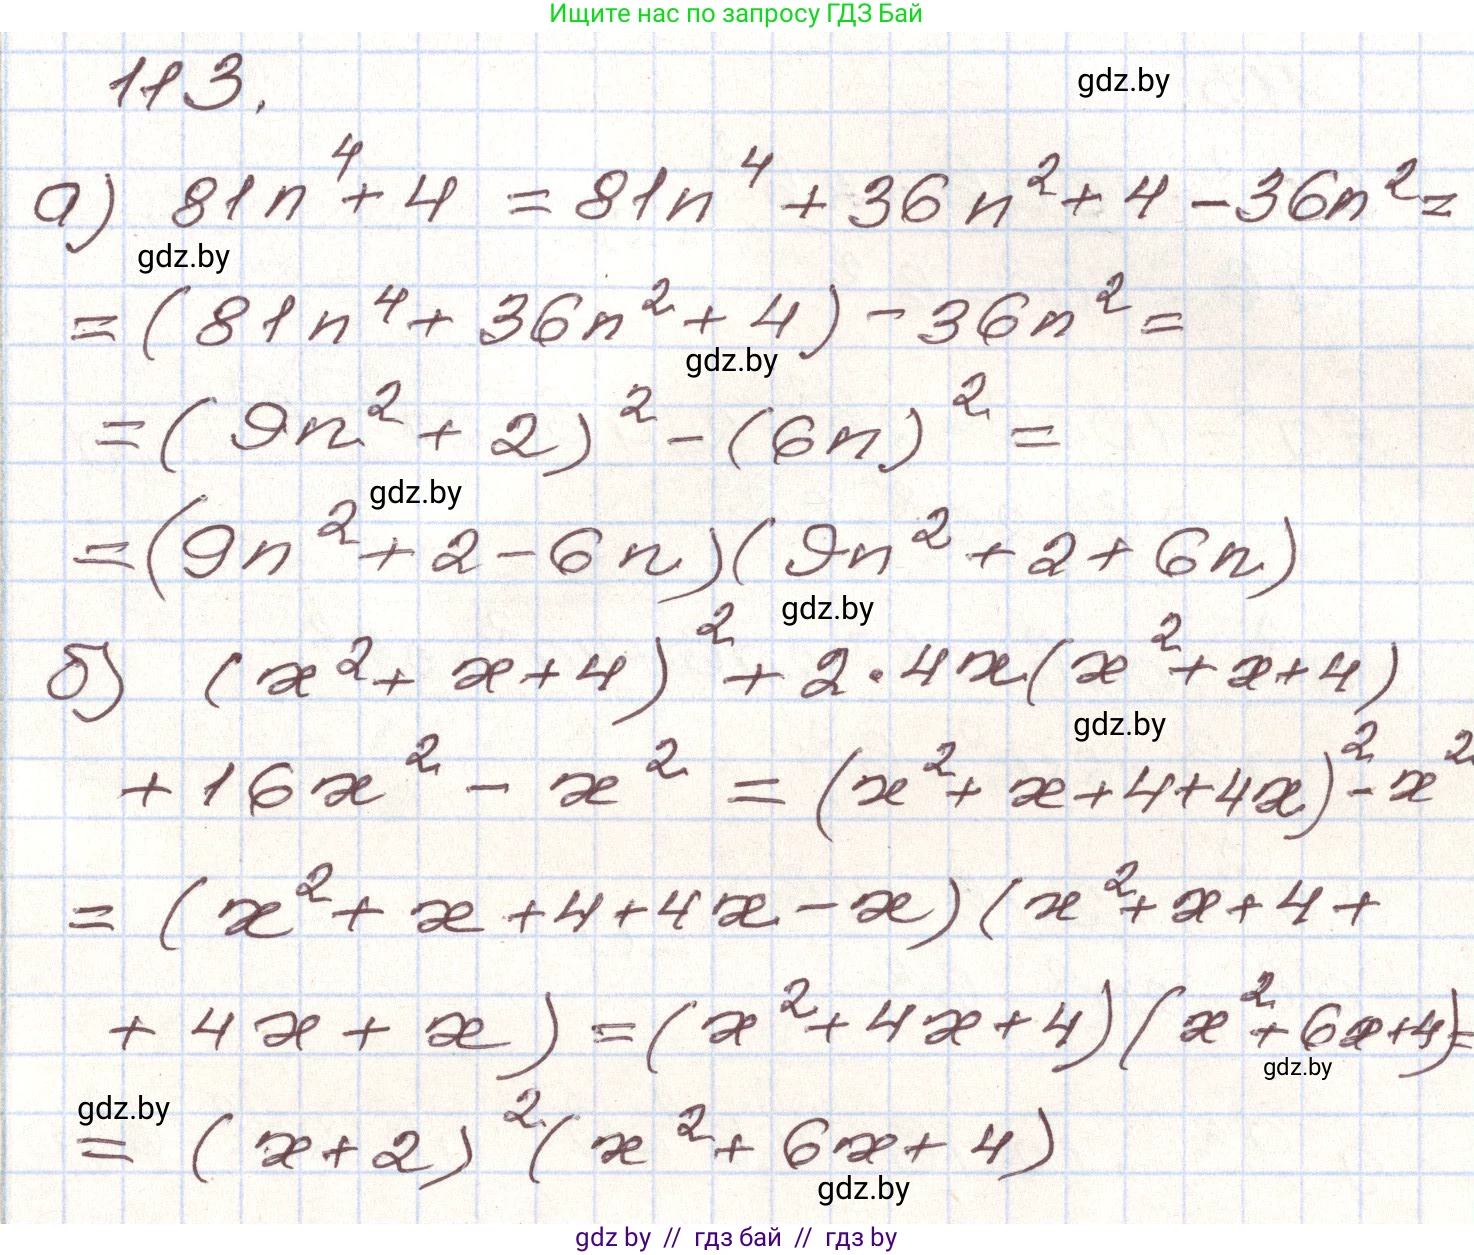 Ищите нас по запросу ГДЗ Бай
113.
gdz.by
а) 81n⁴ + 4 = 81n⁴ + 36n² + 4 - 36n² =
gdz.by
= (81n⁴ + 36n² + 4) - 36n² =
gdz.by
= (9n² + 2)² - (6n)² =
gdz.by
= (9n² + 2 - 6n)(9n² + 2 + 6n)
gdz.by
б) (x² + x + 4)² + 2 · 4x(x² + x + 4)
gdz.by
+ 16x² - x² = (x² + x + 4 + 4x)² - x²
= (x² + x + 4 + 4x - x)(x² + x + 4 +
+ 4x + x) = (x² + 4x + 4)(x² + 6x + 4) =
gdz.by
gdz.by
= (x + 2)²(x² + 6x + 4)
gdz.by
gdz by // гдз бай // гдз by